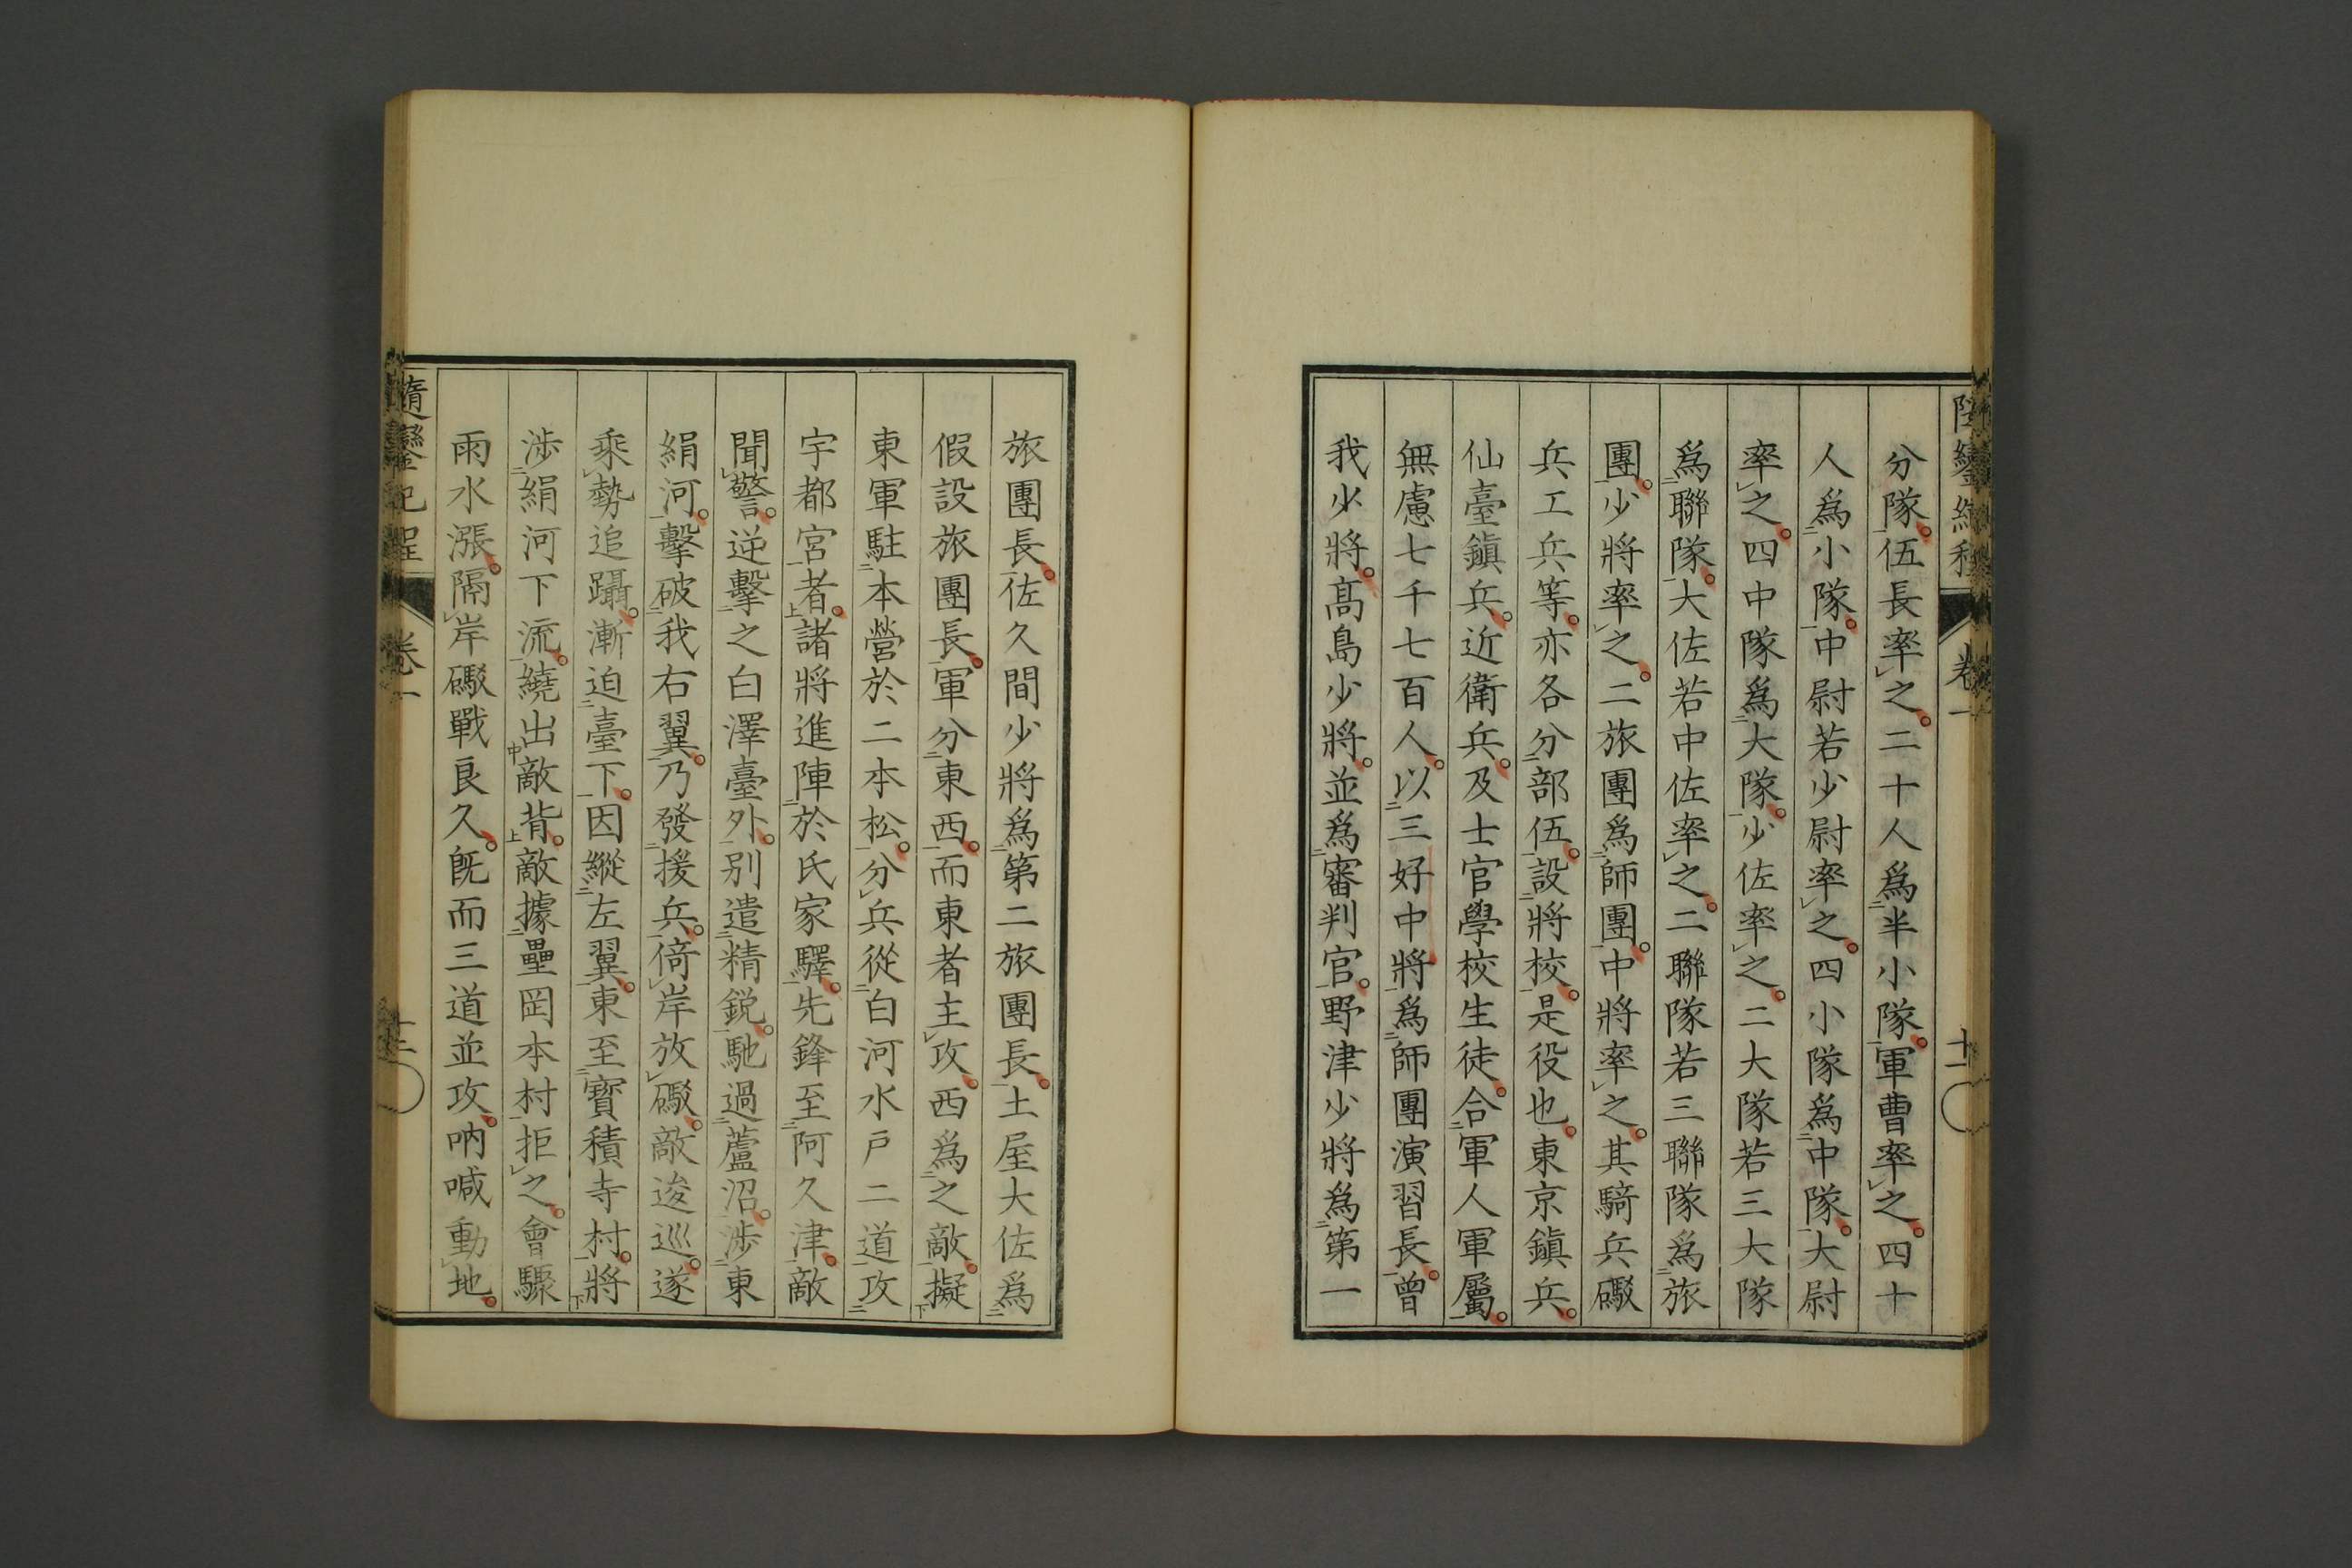 分隊。伍長率之。二十人爲半小隊。軍曹率之。四十
人爲小隊。中尉若少尉率之。四小隊爲中隊。大尉
率之。四中隊爲大隊。少佐率之。二大隊若三大隊
爲聯隊。大佐若中佐率之。二聯隊若三聯隊爲旅
團。少將率之。二旅團爲師團。中將率之。其騎兵礮
兵工兵等。亦各分部伍。設將校。是役也。東京鎭兵。
仙臺鎭兵。近衛兵。及士官學校生徒。合軍人軍屬。
無慮七千七百人。以三好中將爲師團演習長。曾
我少將。髙島少將。並爲審判官。野津少將爲第一
旅團長。佐久間少將爲第二旅團長。土屋大佐爲
假設旅團長。軍分東西。而東者主攻。西爲之敵。擬
東軍駐本營於二本松。分兵從白河水戸二道攻
宇都宮者。諸將進陣於氏家驛。先鋒至阿久津。敵
聞警。逆擊之白澤臺外。別遣精鋭。馳過蘆沼。渉東
絹河。擊破我右翼。乃發援兵。倚岸放礮。敵逡巡。遂
乘勢追躡。漸迫臺下。因縱左翼。東至寳積寺村。將
渉絹河下流。繞出敵背。敵據壘岡本村拒之。會驟
雨水漲。隔岸礮戰良久。既而三道並攻。吶喊動地。
卷一